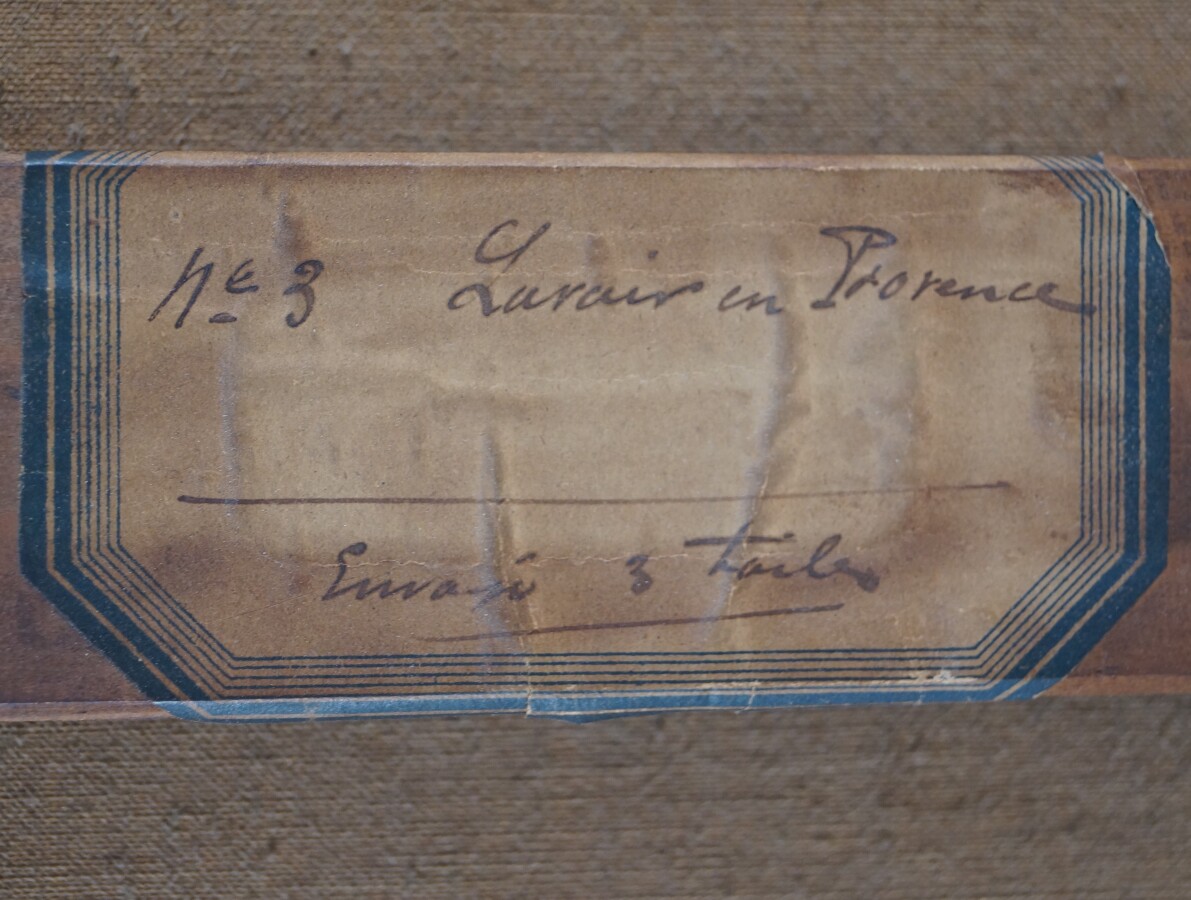 Nº 3 Lavoir en Provence
Envoi 3 toiles